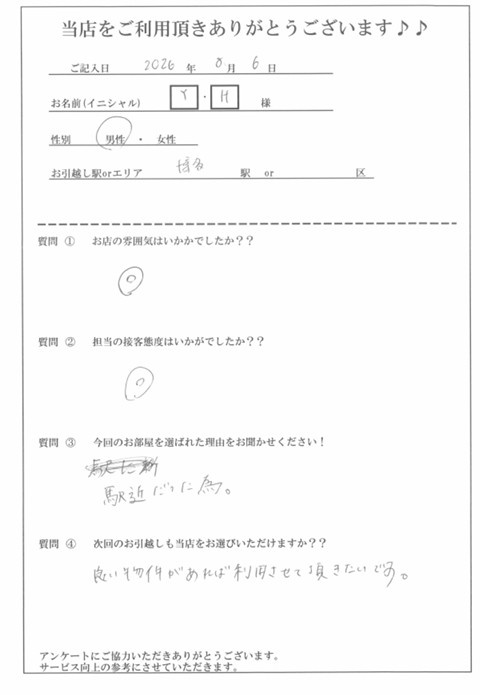 当店をご利用頂きありがとうございます♪♪
ご記入日 2026 年 8 月 6 日
お名前(イニシャル) Y・H 様
性別 男性 ・ 女性
お引越し駅orエリア 博多 駅 or 区
質問 ① お店の雰囲気はいかかでしたか??
◎
質問 ② 担当の接客態度はいかがでしたか??
◎
質問 ③ 今回のお部屋を選ばれた理由をお聞かせください!
駅近だった為。
質問 ④ 次回のお引越しも当店をお選びいただけますか??
良い物件があれば利用させて頂きたいです。
アンケートにご協力いただきありがとうございます。
サービス向上の参考にさせていただきます。